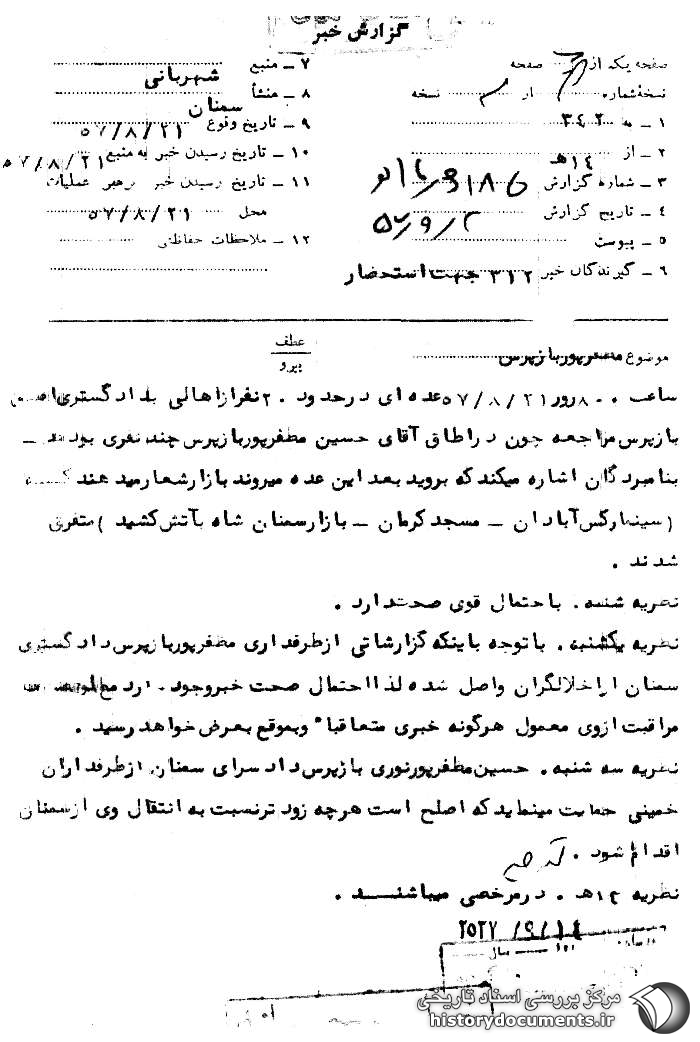 گزارش خبر
صفحه یک از صفحه
نسخه شماره از نسخه
۱ ـ به ۳۴۲
۲ ـ از ۱۴هـ
۳ ـ شماره گزارش
۴ ـ تاریخ گزارش ۵۷/۹/۲
۵ ـ پیوست
۶ ـ گیرندگان خبر ۳۱۲ جهت استحضار
۷ ـ منبع
۸ ـ منشأ شهربانی سمنان
۹ ـ تاریخ وقوع ۵۷/۸/۲۱
۱۰ ـ تاریخ رسیدن خبر به منبع ۵۷/۸/۲۱
۱۱ ـ تاریخ رسیدن خبر به رهبر عملیات
محل ۵۷/۸/۲۱
۱۲ ـ ملاحظات حفاظتی
عطف
پیرو
موضوع مظفرپور بازپرس
ساعت ۸۰۰ روز ۵۷/۸/۲۱ عده ای در حدود ۲۰ نفر از اهالی بدادگستری
بازپرس مراجعه چون در اطاق آقای حسین مظفرپور بازپرس چند نفری بودند ـ
بنامبردگان اشاره میکند که بروید بعد این عده میروند بازار شعار میدهند که
(سینما رکس آبادان ـ مسجد کرمان ـ بازار سمنان شاه بآتش کشید) متفرق
شدند .
نظریه شنبه . باحتمال قوی صحت دارد .
نظریه یکشنبه . با توجه باینکه گزارشاتی از طرفداری مظفرپور بازپرس دادگستری
سمنان از اخلالگران واصل شده لذا احتمال صحت خبر وجود دارد
مراقبت از وی معمول هرگونه خبری متعاقباً و بموقع بعرض خواهد رسید .
نظریه سه شنبه . حسین مظفرپور نوری بازپرس دادسرای سمنان از طرفداران
خمینی حمایت مینماید که اصلح است هرچه زودتر نسبت به انتقال وی از سمنان
اقدام شود .
نظریه ۱۴هـ . در مرخصی میباشند .
۲۵۳۷/۹/۱۴
سال
مرکز بررسی اسناد تاریخی
historydocuments.ir